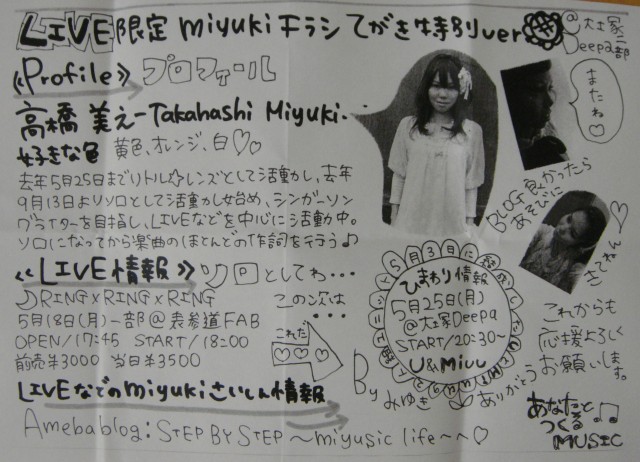 LIVE限定 miyukiチラシ てがき特別ver
@大塚Deepa二部
《Profile》プロフィール
高橋 美え－Takahashi Miyuki・・・
好きな色 黄色、オレンジ、白♡♡
去年5月25日までリトル☆レンズとして活動し、去年
9月13日よりソロとして活動し始め、シンガーソン
グライターを目指し、LIVEなどを中心に活動中。
ソロになってから楽曲のほとんどの作詞を行う♪
またね♡
BLOG良かったら
あそびに
きてねん♡
《LIVE情報》ソロとしてわ・・・
♪RING×RING×RING
この次は・・・
5月18日(月)一部@表参道FAB
OPEN/17:45 START/18:00
前売¥3000 当日¥3500
これだ
♡♡♡
5月3日に結成した
ひまわり情報
5月25日(月)
@大塚Deepa
START/20:30～
U&Miuu
By みゆき
これからも
応援よろしく
お願いします。
ありがとう
LIVEなどのmiyukiさいしん情報
Amebablog:STEP BY STEP ～miyusic life～へ♡
あなたと
つくる
MUSIC